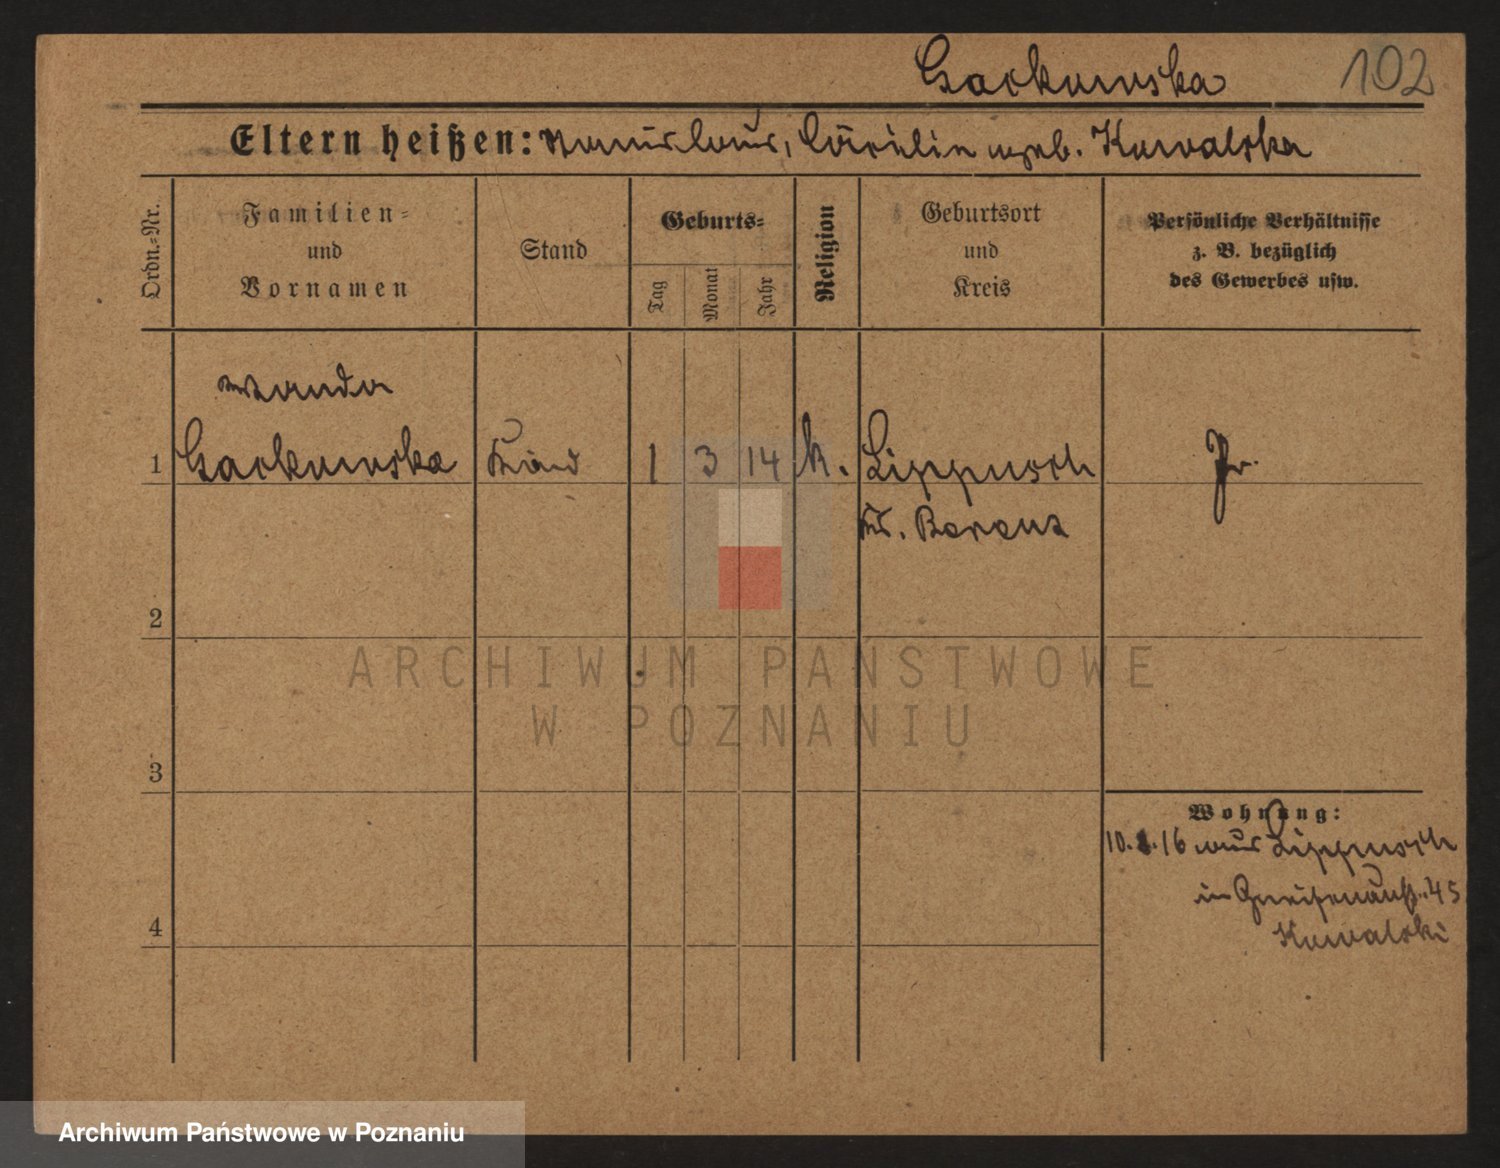 Gackowska 102
Eltern heißen: Stanislaus, Cäcilie geb. Kowalska
Ordn.-Nr.
Familien-
und
Vornamen
Stand
Geburts-
Tag
Monat
Jahr
Religion
Geburtsort
und
Kreis
Persönliche Verhältnisse
z. B. bezüglich
des Gewerbes usw.
Wanda
1 Gackowska Kind 1 3 14 k. Lippusch Pr.
Kr. Berent
2
ARCHIWUM PAŃSTWOWE
W POZNANIU
3
Wohnung:
10. .16 aus Lippusch
in 45
4 Kowalski
Archiwum Państwowe w Poznaniu